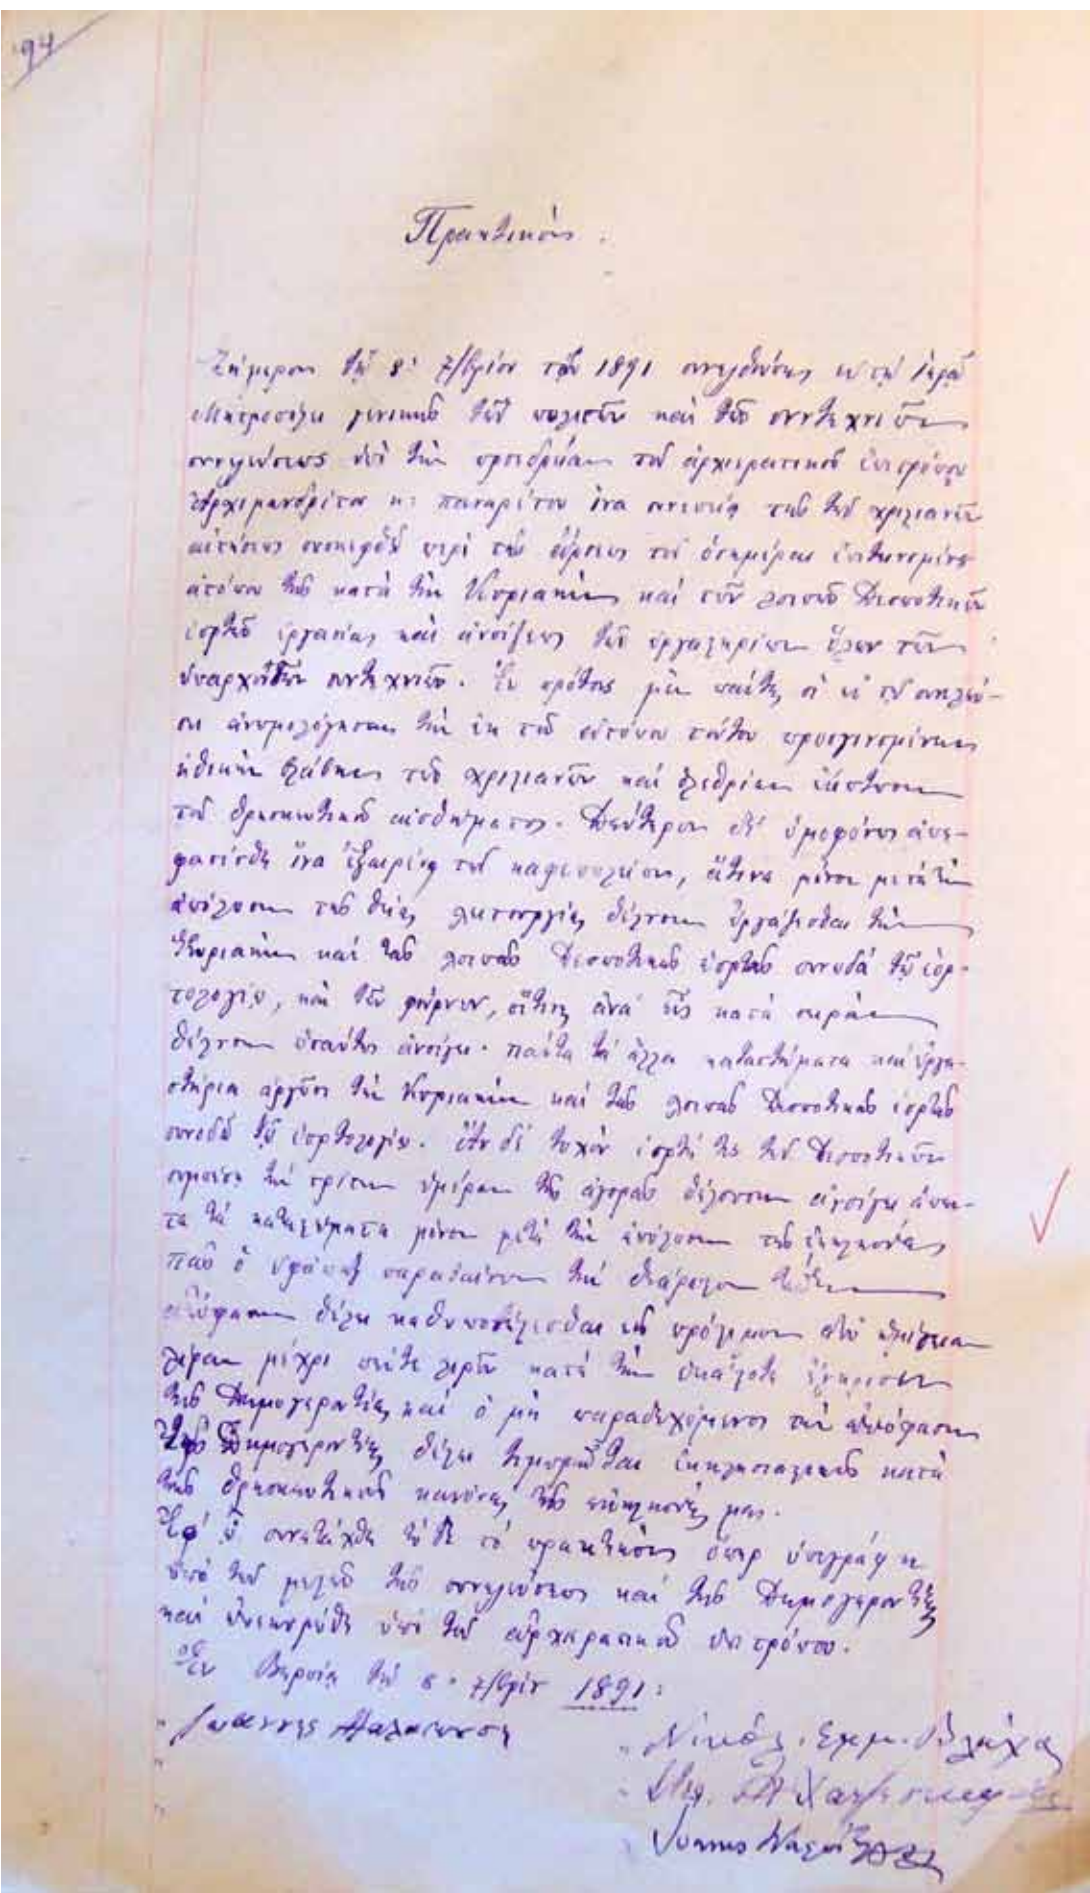 94
Πρακτικόν.
Σήμερον τῇ 8ῃ 7/βρίου τοῦ 1891 συνελθούσης ἐν τῇ Ἱερᾷ
Μητροπόλει γενικῆς τῶν πολιτῶν καὶ τῶν συντεχνιῶν
συνελεύσεως ὑπὸ τὴν προεδρείαν τοῦ ἀρχιερατικοῦ ἐπιτρόπου
Ἀρχιμανδρίτου κ: Παναρέτου ἵνα τῶν χριστιανῶν
αἰτήσεως συσκεφθῇ περὶ τῆς ἄρσεως τοῦ ὁσημέραι
ἀτόπου τῆς κατὰ τὴν Κυριακὴν καὶ τῶν λοιπῶν Δεσποτικῶν
ἑορτῶν ἐργασίας καὶ ἀνοίξεως τῶν ἐργαστηρίων ὅλων τῶν
ὑπαρχόντων συντεχνιῶν. Ἐν πρώτοις μὲν πάντες οἱ ἐν τῇ συνελεύ-
σει ἀνωμολόγησαν τὴν ἐκ τοῦ ἀτόπου τούτου προσγινομένην
ἠθικὴν βλάβην τῶν χριστιανῶν καὶ ὀλεθρίαν
τοῦ θρησκευτικοῦ αἰσθήματος. Δεύτερον δὲ ὁμοφώνως ἀπε-
φασίσθη ἵνα ἐξαιρέσῃ τῶν καφεπωλείων, ἅτινα μόνον μετὰ τὴν
ἀπόλυσιν τῆς θείας λειτουργίας θέλουν ἐργάζεσθαι τὴν
Κυριακὴν καὶ τὰς λοιπὰς Δεσποτικὰς ἑορτὰς συνῳδὰ τῷ ἑορ-
τολογίῳ, καὶ τῶν φούρνων, οἵτινες ἀνὰ εἷς κατὰ σειρὰν
θέλουν ὡσαύτως ἀνοίγει. πάντα τὰ ἄλλα καταστήματα καὶ ἐργα-
στήρια ἀργῶσι τὴν Κυριακὴν καὶ τὰς λοιπὰς Δεσποτικὰς ἑορτὰς
συνῳδὰ τῷ ἑορτολογίῳ. Ἐὰν δὲ τυχὸν ἑορτή τις τῶν Δεσποτικῶν
συμπέσῃ τὴν τρίτην ἡμέραν τῆς ἀγορᾶς θέλουσιν ἀνοίγει ἅπαν-
τα τὰ καταστήματα μόνον μετὰ τὴν ἀπόλυσιν τῆς ἐκκλησίας
πᾶς ὁ παραβαίνων τὴν ταύτην
ἀπόφασιν θέλει καθυποβάλλεσθαι εἰς πρόστιμον ἀπὸ ἡμίσειαν
λίραν μέχρι πέντε λιρῶν κατὰ τὴν ἑκάστοτε ἔγκρισιν
τῆς Δημογεροντίας καὶ ὁ μὴ παραδεχόμενος τὴν ἀπόφασιν
τῆς Δημογεροντίας θέλει τιμωρεῖται ἐκκλησιαστικῶς κατὰ
τοὺς θρησκευτικοὺς κανόνας τῆς ἐκκλησίας μας.
Ἐφ' ᾧ συνετάχθη τόδε τὸ πρακτικὸν ὅπερ ὑπεγράφη
ὑπὸ τῶν μελῶν τῆς συνελεύσεως καὶ τῆς Δημογεροντίας
καὶ ἐπεκυρώθη ὑπὸ τοῦ ἀρχιερατικοῦ ἐπιτρόπου.
Ἐν Βερροίᾳ τῇ 8ῃ 7/βρίου 1891:
Ἰωάννης
Νικόλ. Εμμ. Βλαχα